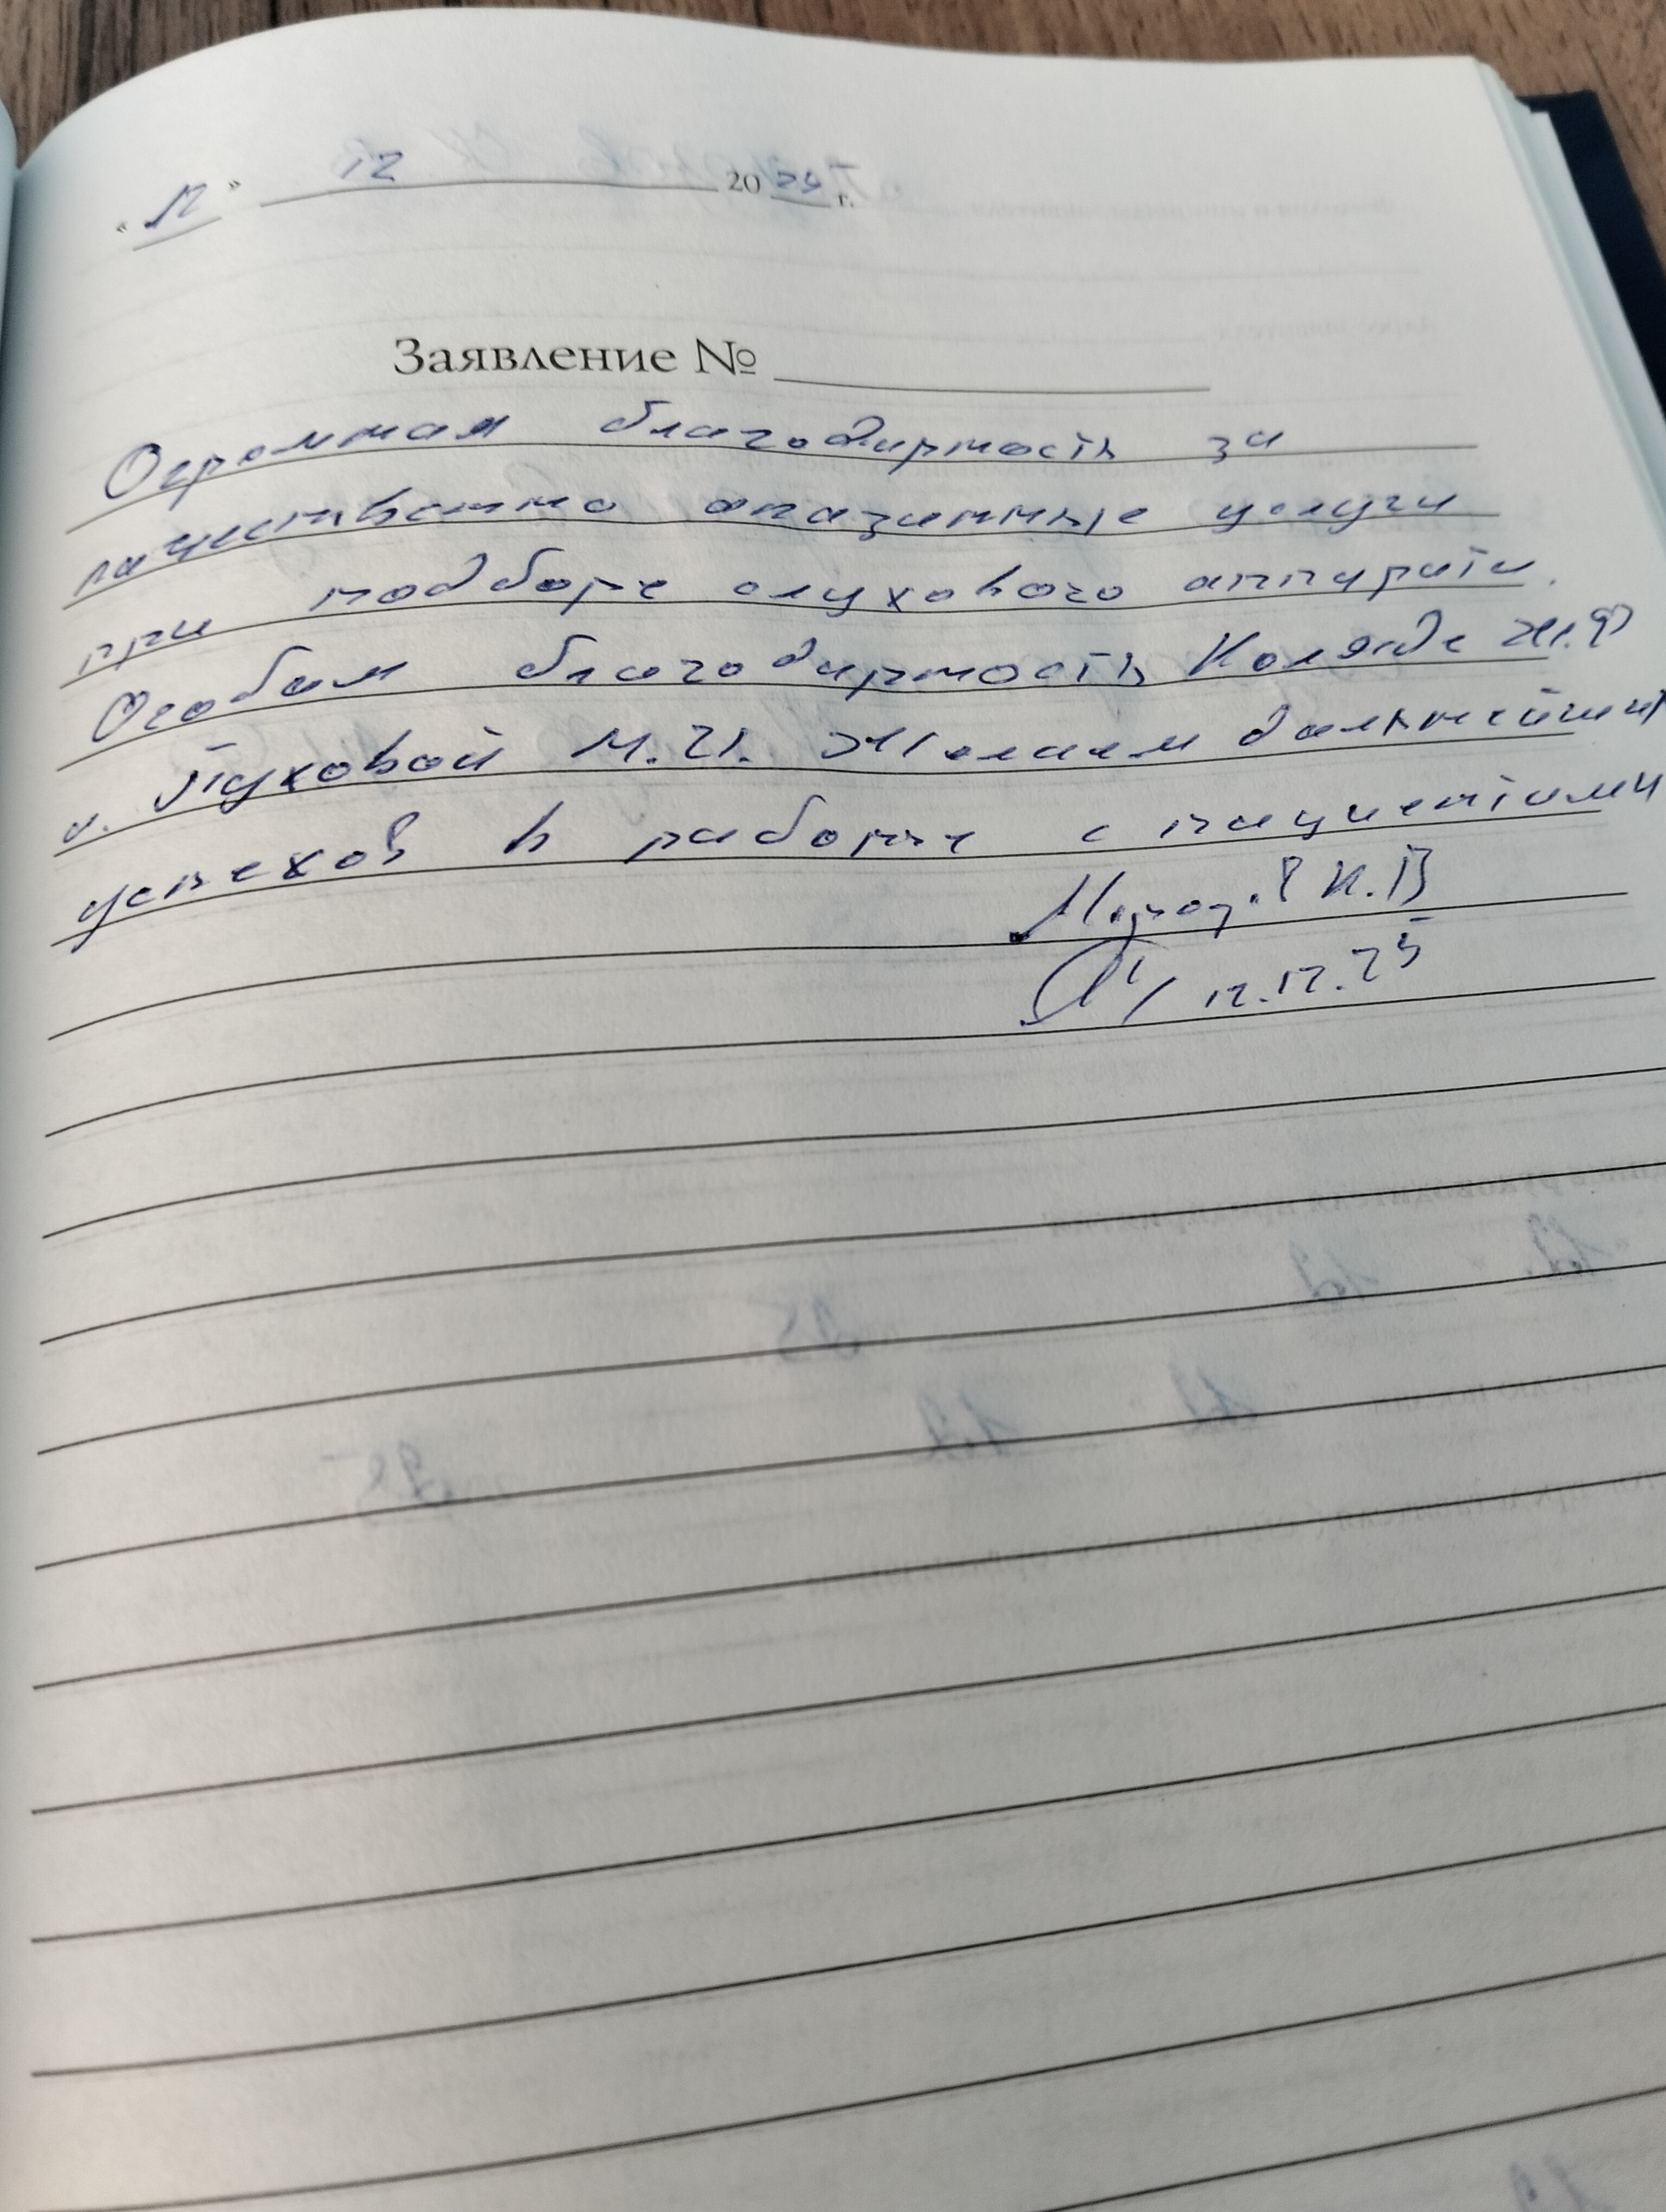 « 12 » 12 2025 г.
Заявление №
Огромная благодарность за
качественно оказанные услуги
при подборе слухового аппарата.
Особая благодарность Коляде Ж.Ф
и. Пуховой М.И. Желаем дальнейших
успехов в работе с пациентами
Мороз К.В
12.12.25